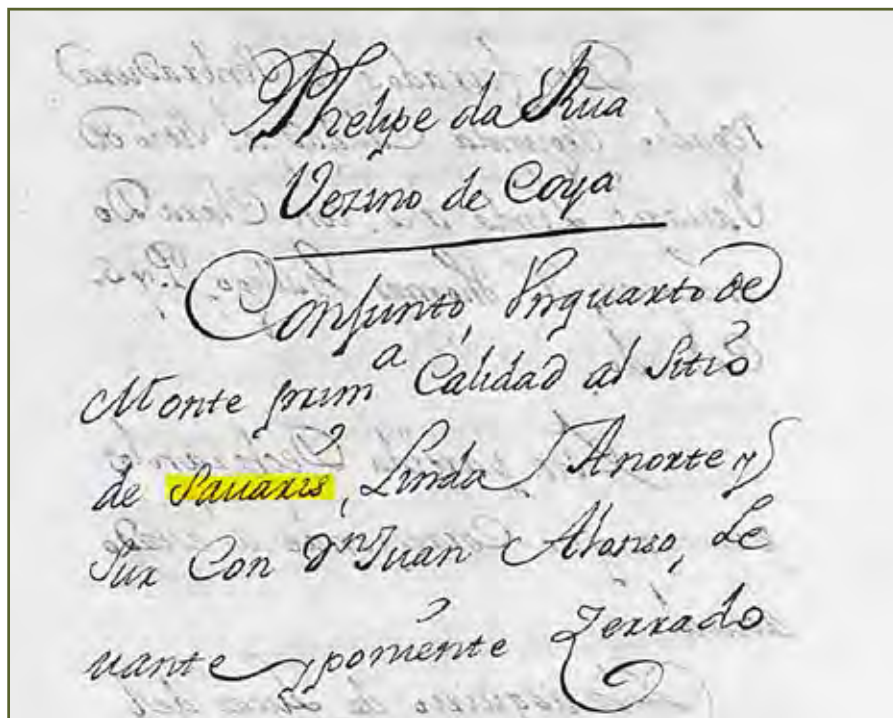 Phelipe da Rua
Vezino de Coya
Conjunto, Unquarto de
Monte prim^a Calidad al Sitio
de Sauaris, Linda Anorte y
Sur Con D^n Juan Alonso, Le
uante y poniente Zerrado